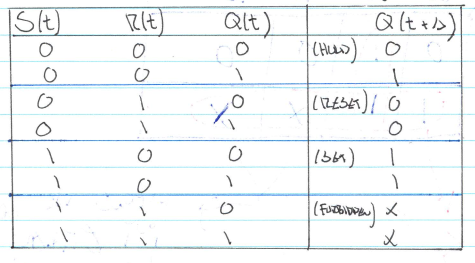 S(t) R(t) Q(t) Q(t+Δ)
0 0 0 (HOLD) 0
0 0 1 1
0 1 0 (RESET) 0
0 1 1 0
1 0 0 (SET) 1
1 0 1 1
1 1 0 (FORBIDDEN) X
1 1 1 X